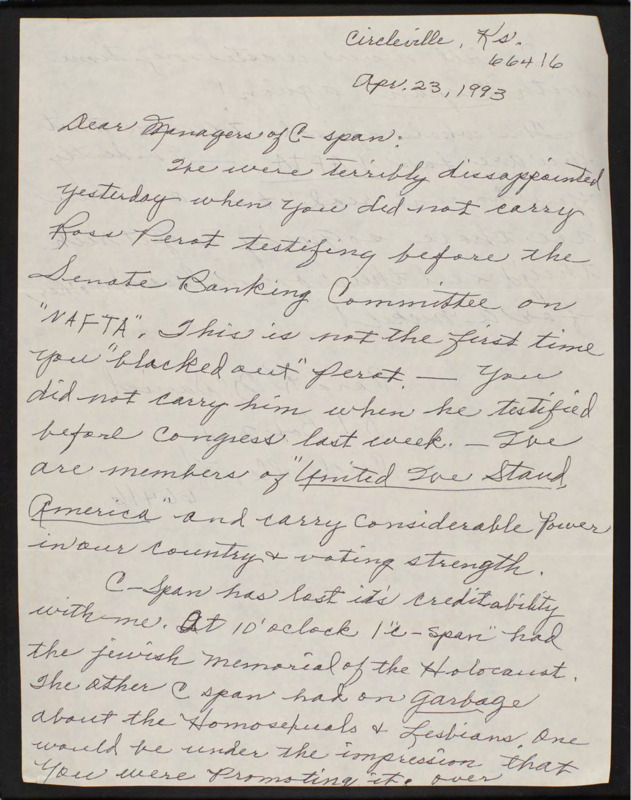 Circleville, Ks.
66416
Apr. 23, 1993
Dear Managers of C-span:
We were terribly dissappointed
yesterday when you did not carry
Ross Perot testifing before the
Senate Banking Committee on
"NAFTA". This is not the first time
you "blacked out" Perot. — You
did not carry him when he testified
before Congress last week. — We
are members of "United We Stand,
America" and carry considerable power
in our country & voting strength.
C-Span has lost it's creditability
with me. At 10 o'clock 1 "C-Span" had
the jewish memorial of the Holocaust.
The other C span had on garbage
about the Homosexuals & Lesbians. One
would be under the impression that
you were promoting it. over